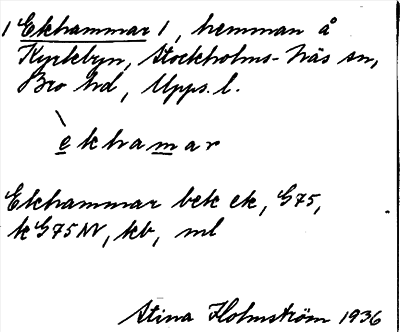 1 Ekhammar 1, hemman å
Kyrkbyn, Stockholms-Näs sn,
Bro hd, Upps. l.
ekhamar
Ekhammar bek ek, G75,
k G75 NV, kb, ml
Stina Holmström 1936